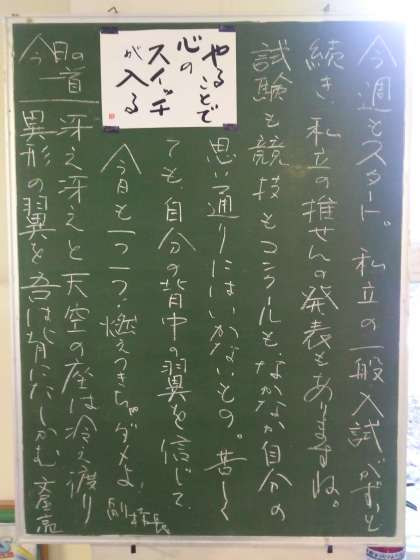 今週もスタート。私立の一般入試がずっと
続き、私立の推せんの発表もありますね。
試験も競技もコンクールも、なかなか自分の
思い通りにはいかないもの。苦しく
ても、自分の背中の翼を信じて、
今日も一つ一つ。燃えつきちゃダメよ。
副校長
やることで
心の
スイッチ
が入る
今日の一首
冴え冴えと天空の座は冷え渡り
異形の翼を吾は背にたしかむ